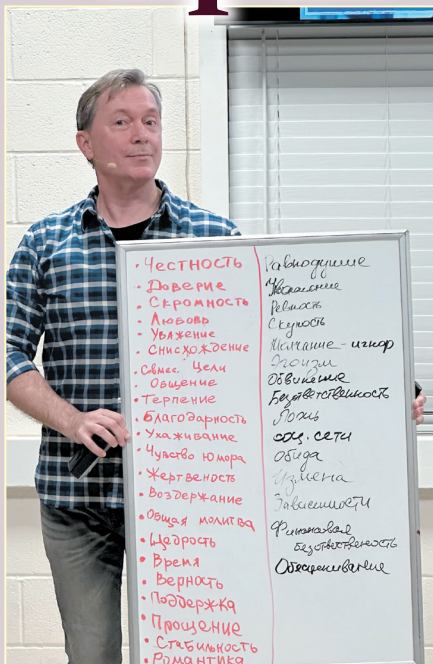 • Честность
• Доверие
• Скромность
• Любовь
• Уважение
• Снисхождение
• Совмес. Цели
• Общение
• Терпение
• Благодарность
• Ухаживание
• Чувство юмора
• Жертвеность
• Воздержание
• Общая молитва
• Щедрость
• Время
• Верность
• Поддержка
• Прощение
• Стабильность
• Романтика
Равнодушие
Ревность
Скупость
Молчание - игнор
Эгоизм
Обвинение
Безответственность
Ложь
соц. сети
Обида
Измена
Зависимости
Финансовая
Безответственность
Обесценивание